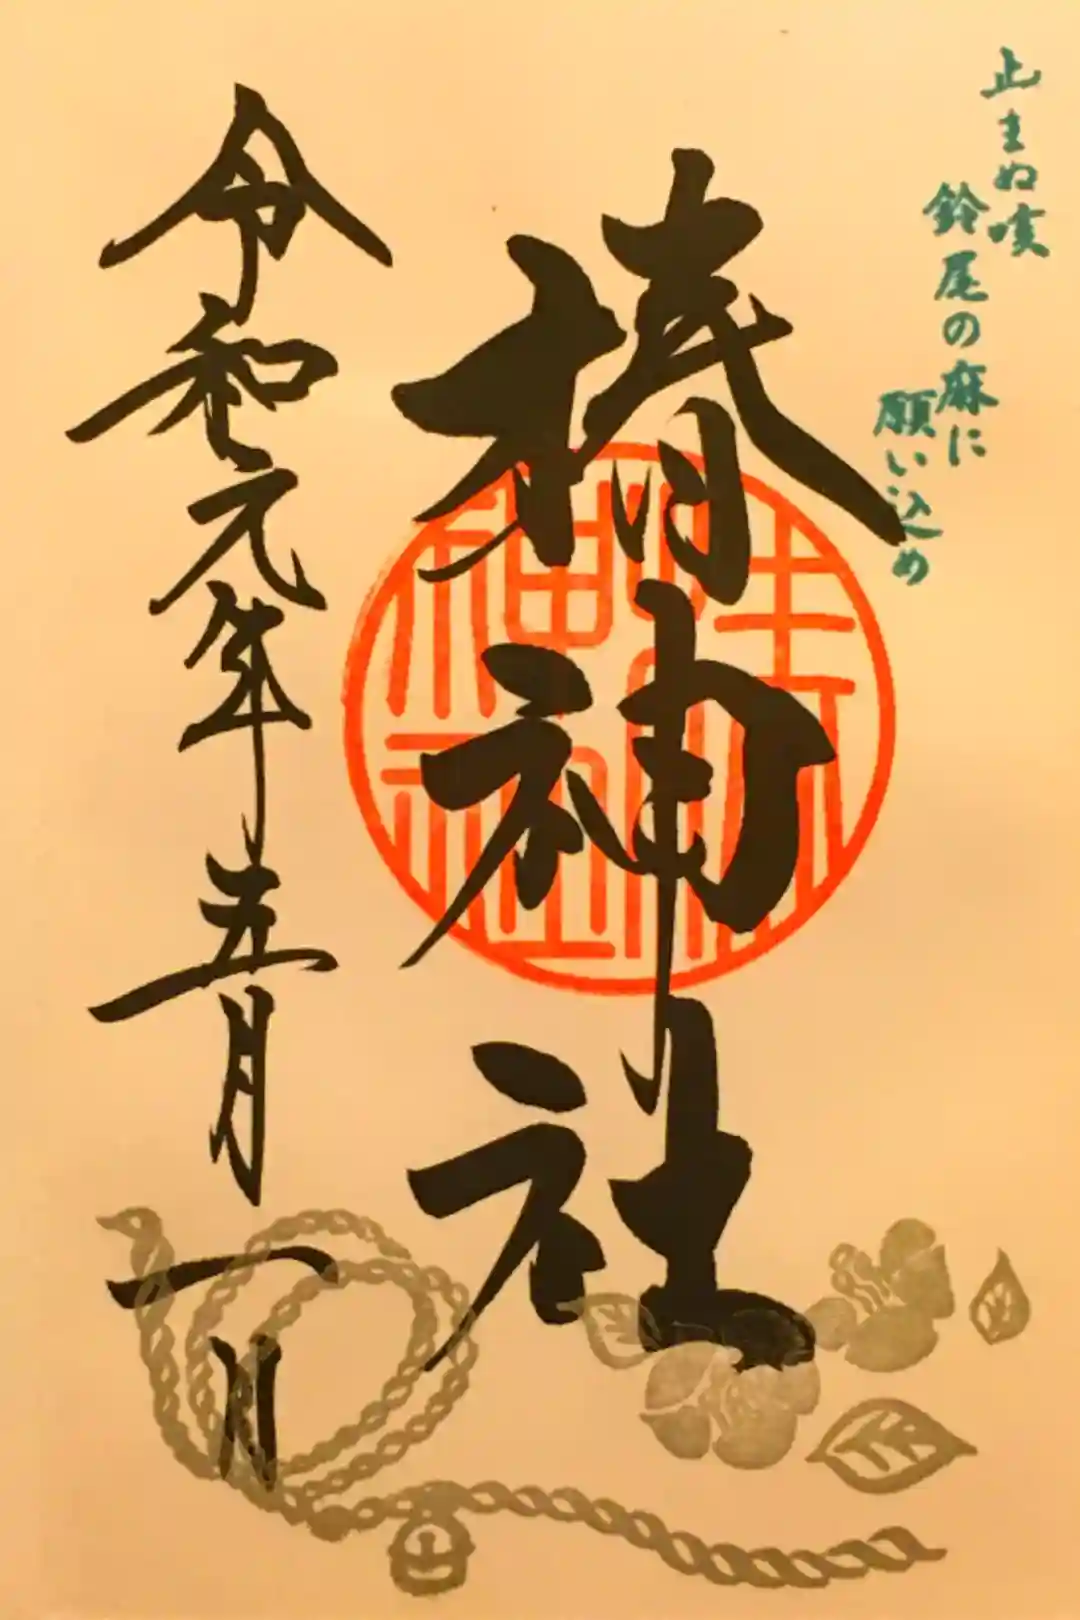 止まぬ咳
鈴尾の麻に
願い込め
椿神社
令和元年五月一日